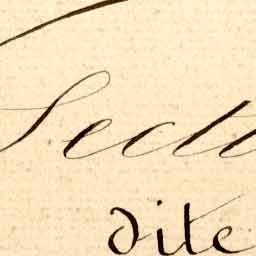 Sect
dite